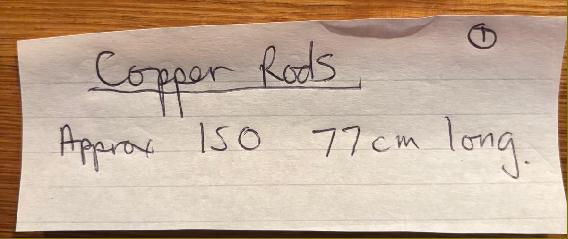 ①
Copper Rods
Approx 150 77cm long.